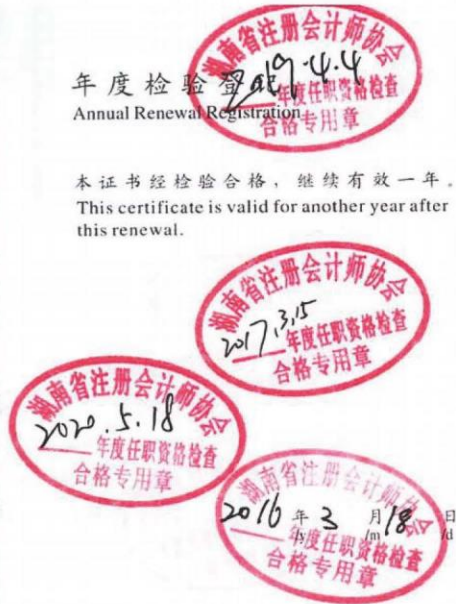 湖南省注册会计师协会
年度检验登记
2019.4.4
年度任职资格检查
Annual Renewal Registration
合格专用章
本证书经检验合格，继续有效一年。
This certificate is valid for another year after
this renewal.
湖南省注册会计师协会
2017.3.15
年度任职资格检查
合格专用章
湖南省注册会计师协会
2020.5.18
年度任职资格检查
合格专用章
湖南省注册会计师协会
2016 年 3 月 18 日
/y /m /d
年度任职资格检查
合格专用章